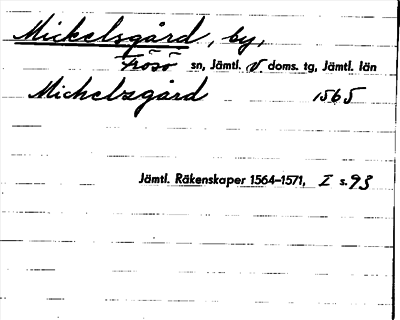 Mickelsgård, by,
Frösö sn, Jämtl. V doms. tg, Jämtl. län
Michelzgård 1565
Jämtl. Räkenskaper 1564–1571, I s. 93